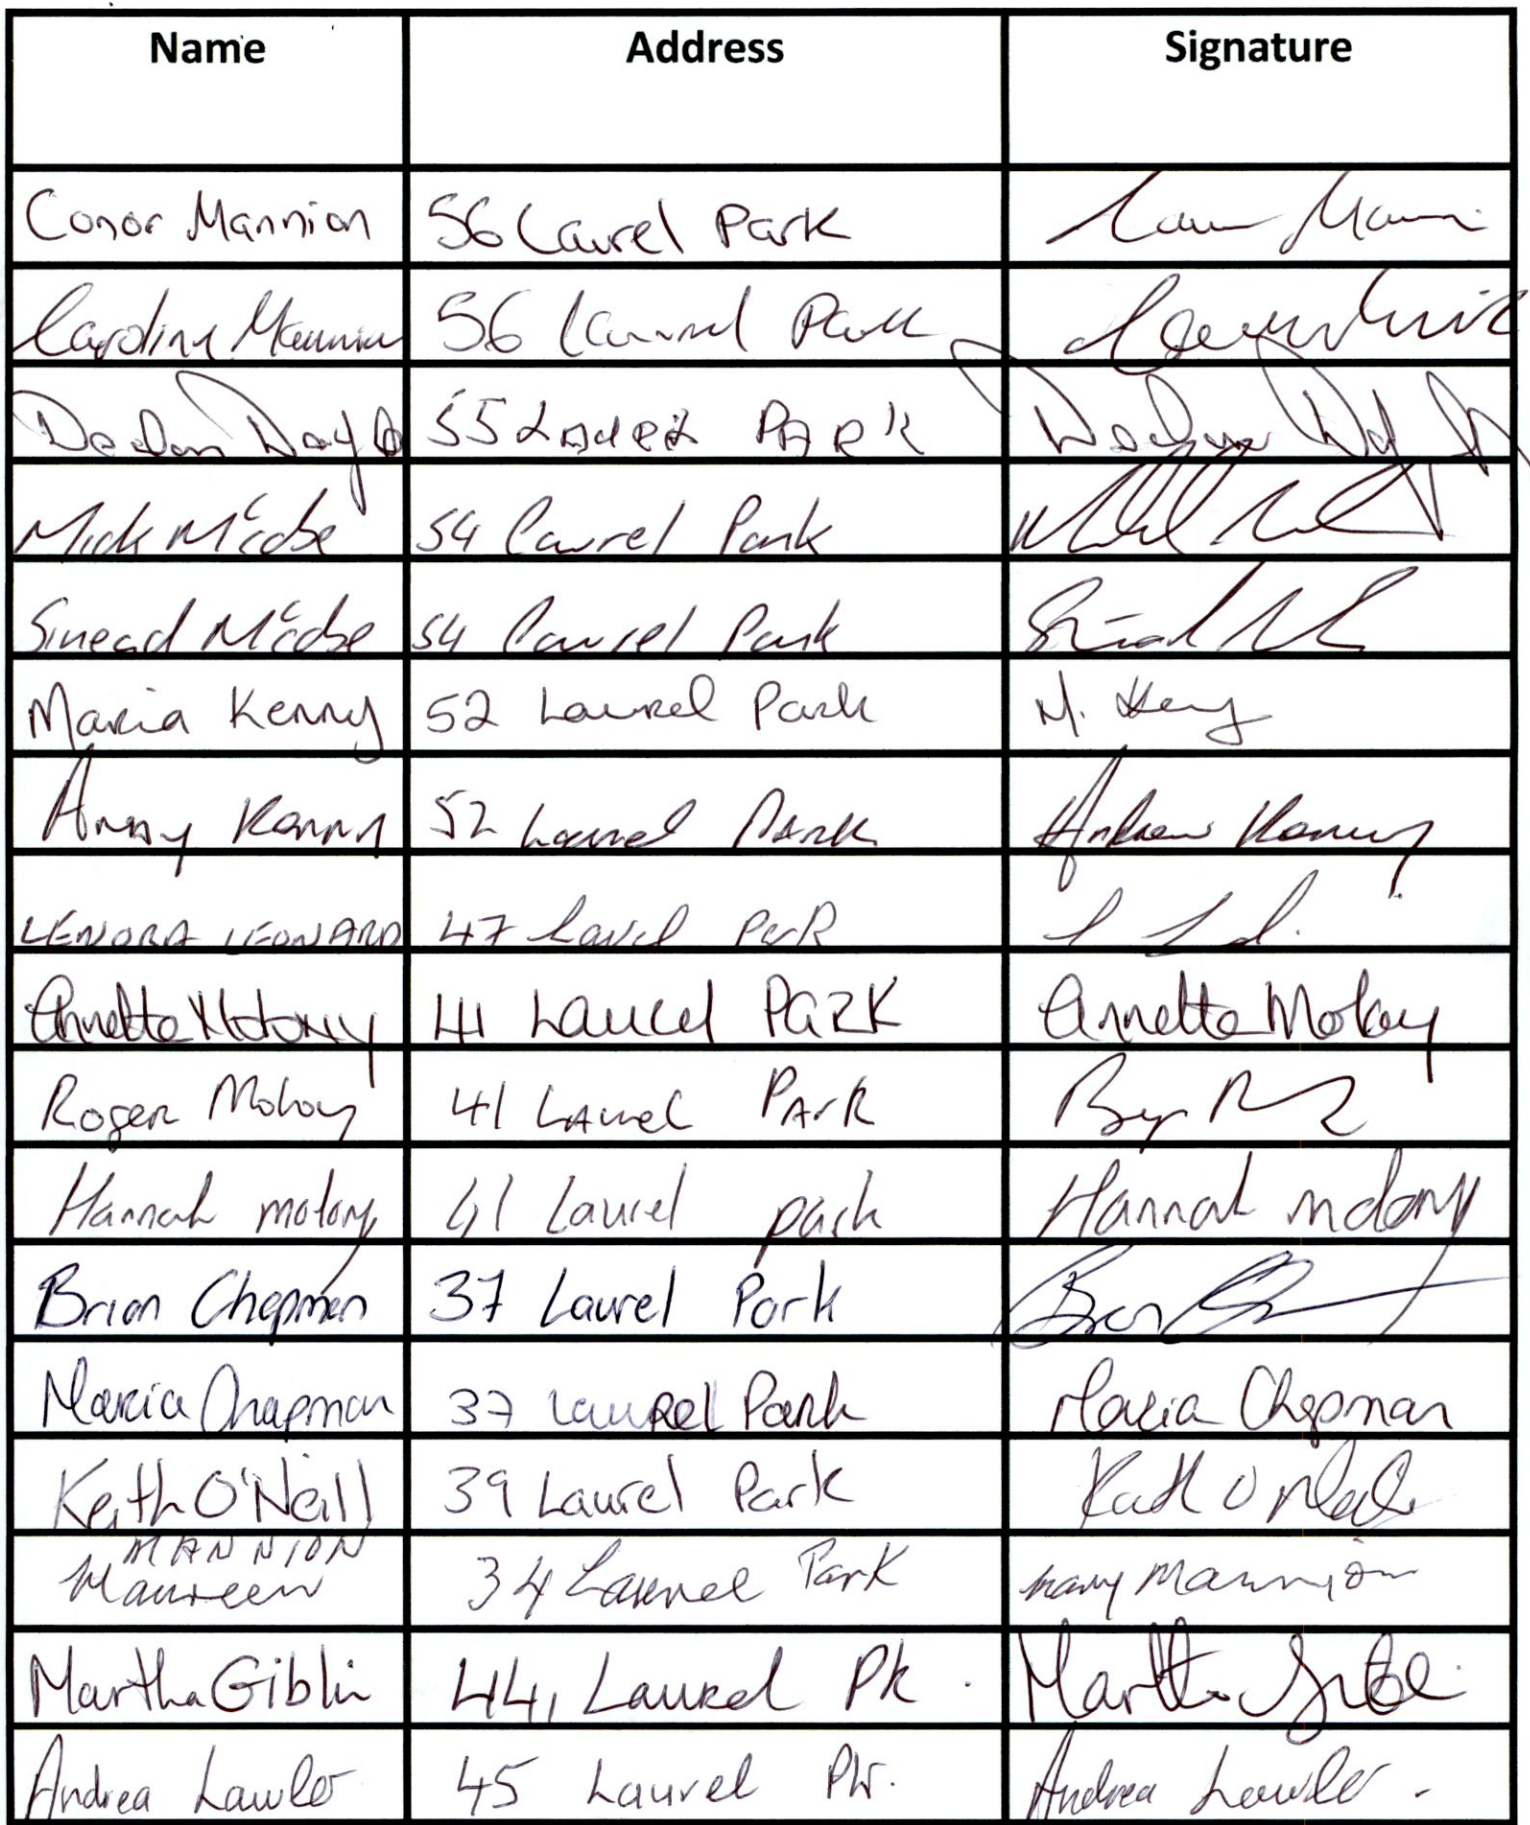 Name Address Signature
Conor Mannion 56 Laurel Park
Caroline Mannion 56 Laurel Park
Declan Doyle 55 LAUREL PARK
Mick McCabe 54 Laurel Park
Sinead McCabe 54 Laurel Park
Maria Kenny 52 Laurel Park M. Kenny
Andy Kenny 52 Laurel Park Andrew Kenny
LENORA LEONARD 47 Laurel Park
Annette Molony 41 Laurel PaRK Annette Molony
Roger Molony 41 LAurel PArk
Hannah molony 41 Laurel park Hannah molony
Brian Chapman 37 Laurel Park
Maria Chapman 37 Laurel Park Maria Chapman
Keith O'Neill 39 Laurel Park Keith O'Neill
MANNION
Maureen 34 Laurel Park Mary Mannion
Martha Giblin 44, Laurel Pk. Martha Giblin
Andrea Lawlor 45 Laurel Pk. Andrea Lawlor.